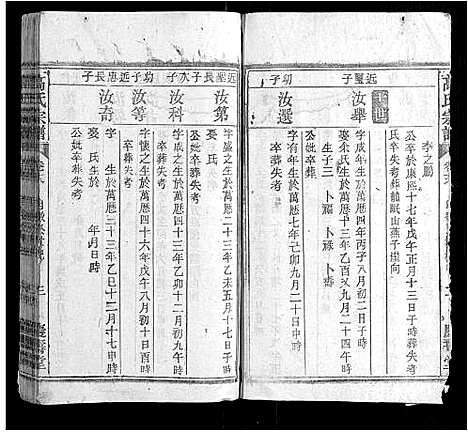 李之鵬
公卒於康熙十七年戊午十月十三日子時葬失考
氏卒失考葬龍眠山燕子崖向
近璽子
汝舉
字成年生於萬曆四年丙子八月初二日子時
娶余氏生於萬曆九年九月二十四時
生子三 卜福 卜祿 卜壽
公妣卒葬失考
幼子
汝選
字有年生於萬曆七年己卯九月二十日時
公卒葬失考
近墅長子
汝第
字盛之生於萬曆二十三年乙未五月十七日子時
娶氏
公妣卒葬失考
次子
汝科
字之生於萬曆四十三年乙卯十月初九午時
卒葬失考
幼子
汝等
字之生於萬曆四十六年戊午八月初十日酉時
卒葬失考
近唐長子
汝奇
字懋之生於萬曆三十三年乙巳十二月十七申時
娶 氏生於 年 月 日 時
公妣卒葬失考
高氏宗譜